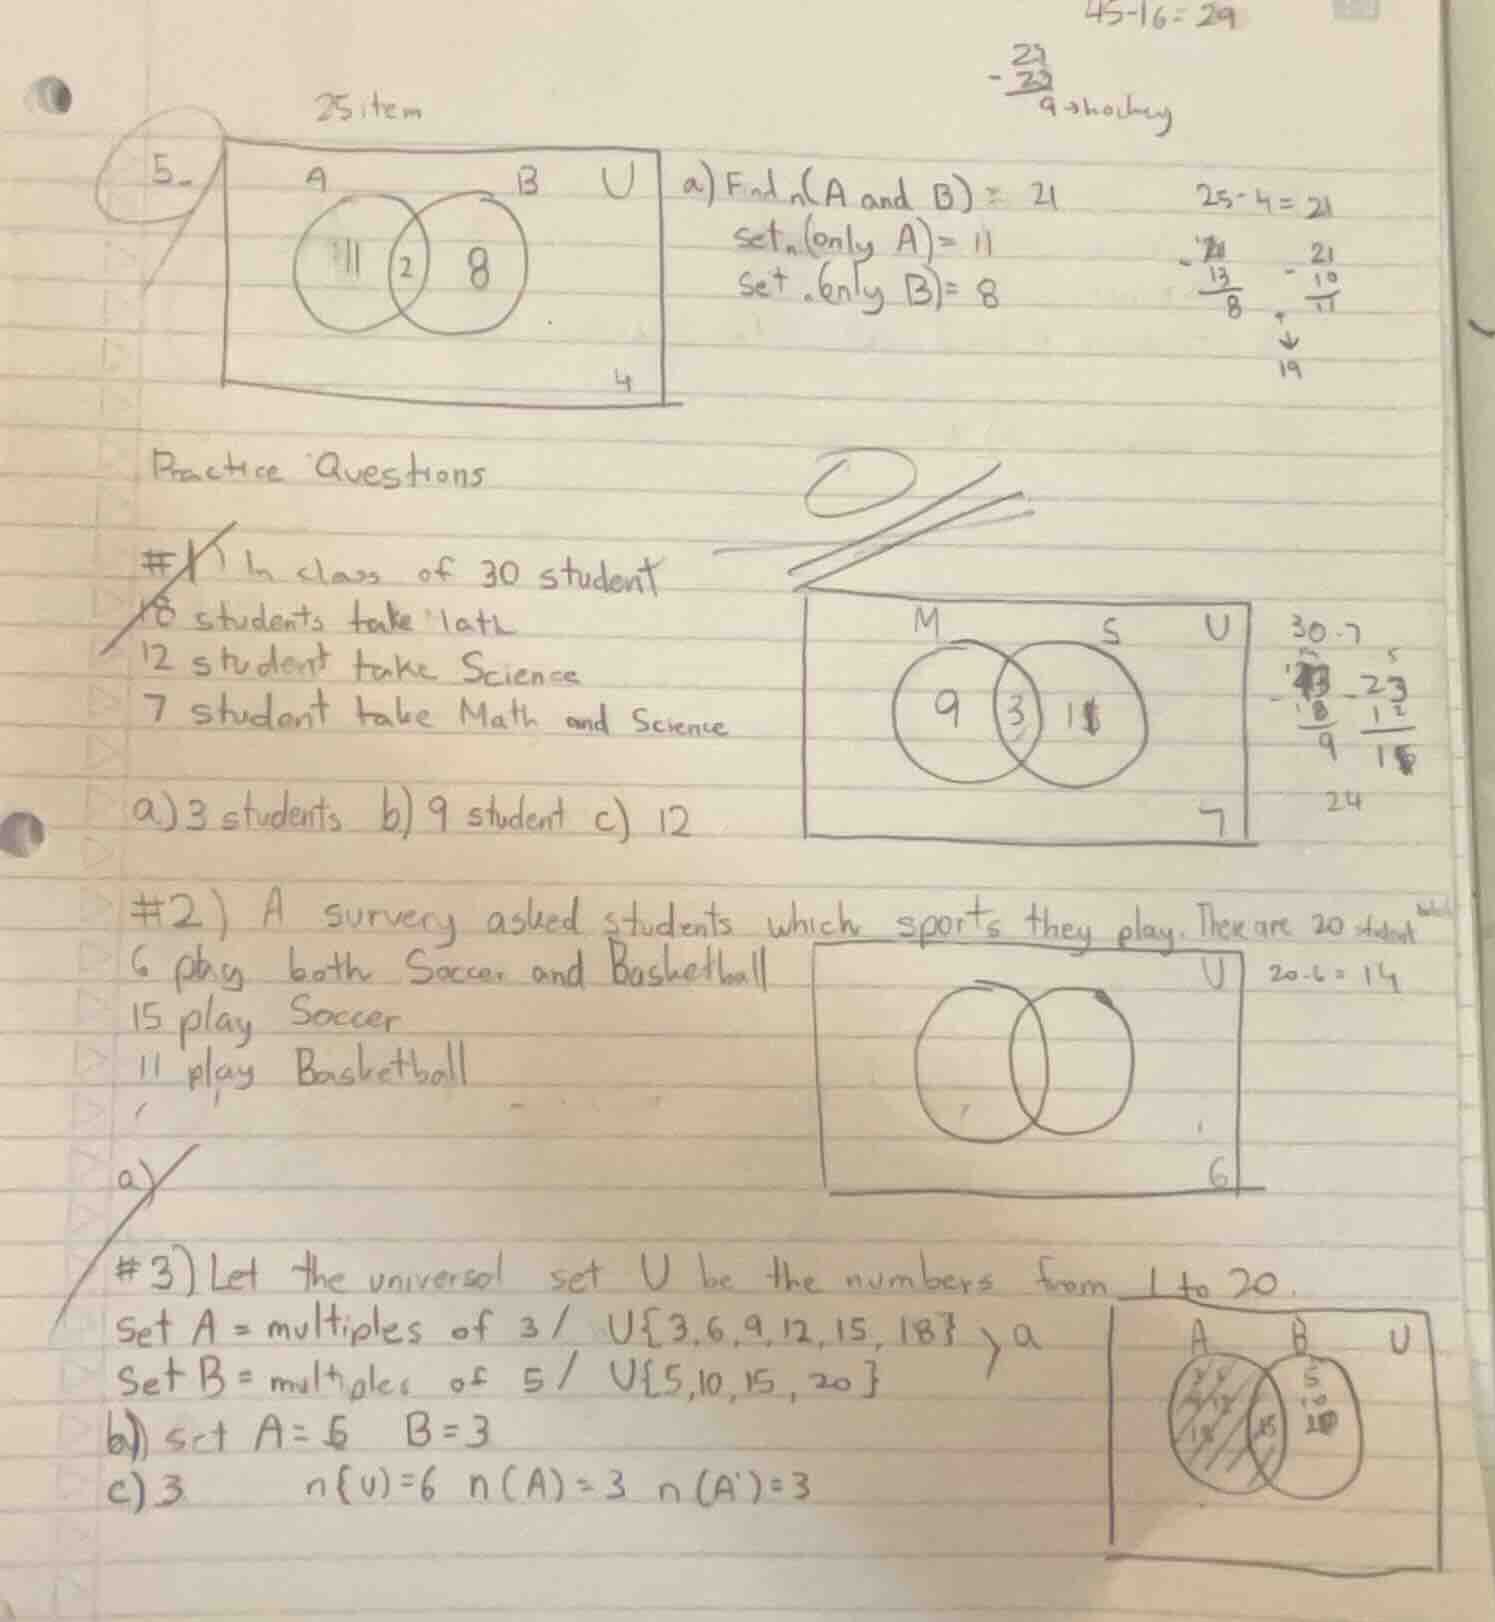 45-16=29
29
- 20
9→hockey
25 item
5.
A B U
11 2 8
4
a) Find n(A and B) = 21
set n(only A) = 11
set n(only B) = 8
25-4=21
- 21
13
8
- 21
10
11
↓
19
Practice Questions
#1) In class of 30 student
18 students take
12 student take Science
7 student take Math and Science
a) 3 students b) 9 student c) 12
M S U
9 3 11
7
30-7
- 23
18
9
- 23
12
24
#2) A survery asked students which sports they play. There are 20 student
6 play both Soccer and Basketball
15 play Soccer
11 play Basketball
U
6
20-6=14
a)
#3) Let the universal set U be the numbers from 1 to 20.
Set A = multiples of 3 / U{3,6,9,12,15,18} > a
Set B = multiples of 5 / U{5,10,15,20}
b) set A = 6 B = 3
c) 3 n{U)=6 n(A)=3 n(A')=3
A B U
15
5
10
20